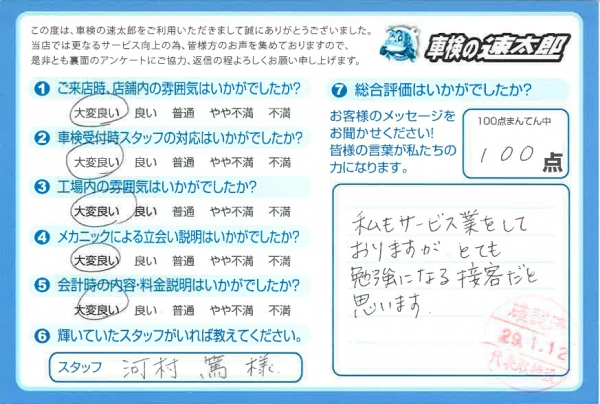 この度は、車検の速太郎をご利用いただきまして誠にありがとうございました。
当店では更なるサービス向上の為、皆様方のお声を集めておりますので、
是非とも裏面のアンケートにご協力、返信の程よろしくお願い申し上げます。
車検の速太郎
1 ご来店時、店舗内の雰囲気はいかがでしたか?
大変良い 良い 普通 やや不満 不満
2 車検受付時スタッフの対応はいかがでしたか?
大変良い 良い 普通 やや不満 不満
3 工場内の雰囲気はいかがでしたか?
大変良い 良い 普通 やや不満 不満
4 メカニックによる立会い説明はいかがでしたか?
大変良い 良い 普通 やや不満 不満
5 会計時の内容・料金説明はいかがでしたか?
大変良い 良い 普通 やや不満 不満
6 輝いていたスタッフがいれば教えてください。
スタッフ 河村 篤 様
7 総合評価はいかがでしたか?
お客様のメッセージを
お聞かせください!
皆様の言葉が私たちの
力になります。
100点まんてん中
100点
私もサービス業をして
おりますが とても
勉強になる接客だと
思います.
確認済
29.1.12
代表取締役